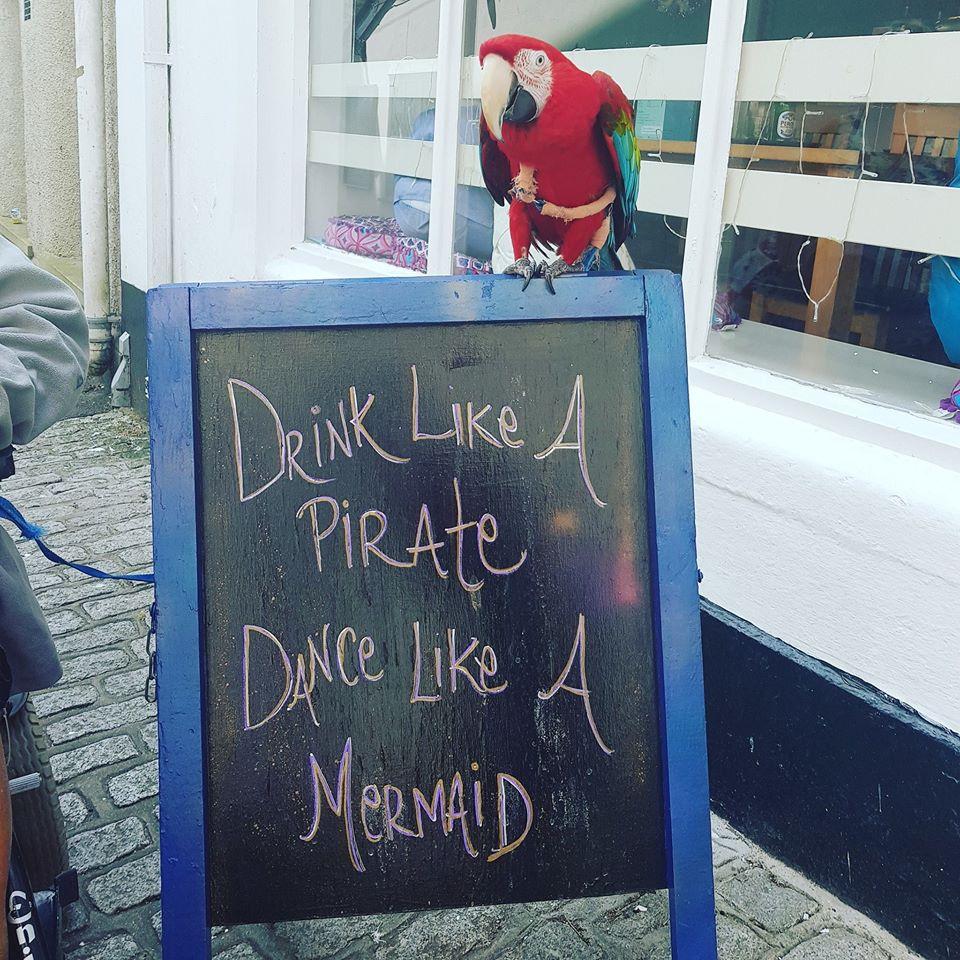 Drink Like A
Pirate
Dance Like A
Mermaid